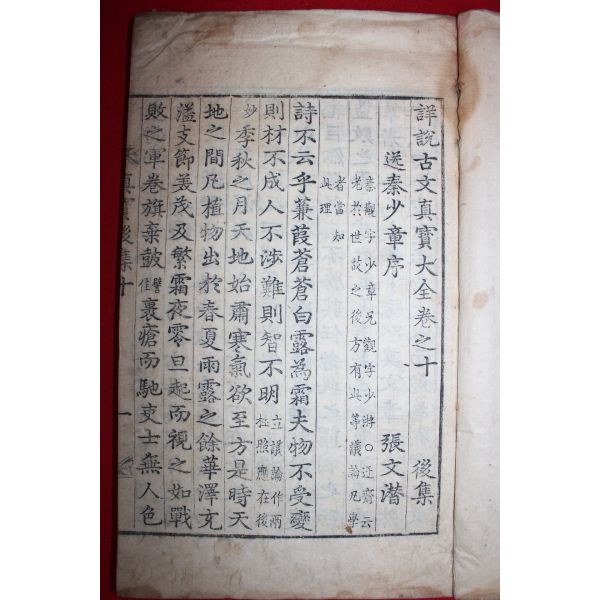 詳說古文真寶大全卷之十 後集
送秦少章序 張文潛
秦觀字少章兄觀字少游○迂齋云
老於世故之後方有此等議論凡學
者當知
此理
詩不云乎蒹葭蒼蒼白露為霜夫物不受變
則材不成人不涉難則智不明立議論作兩
柱照應在後
妙季秋之月天地始肅寒氣欲至方是時天
地之間凡植物出於春夏雨露之餘華澤充
溢支節美茂及繁霜夜零旦起而視之如戰
敗之軍卷旗棄鼓譬佳裹瘡而馳吏士無人色
真寶後集十 一